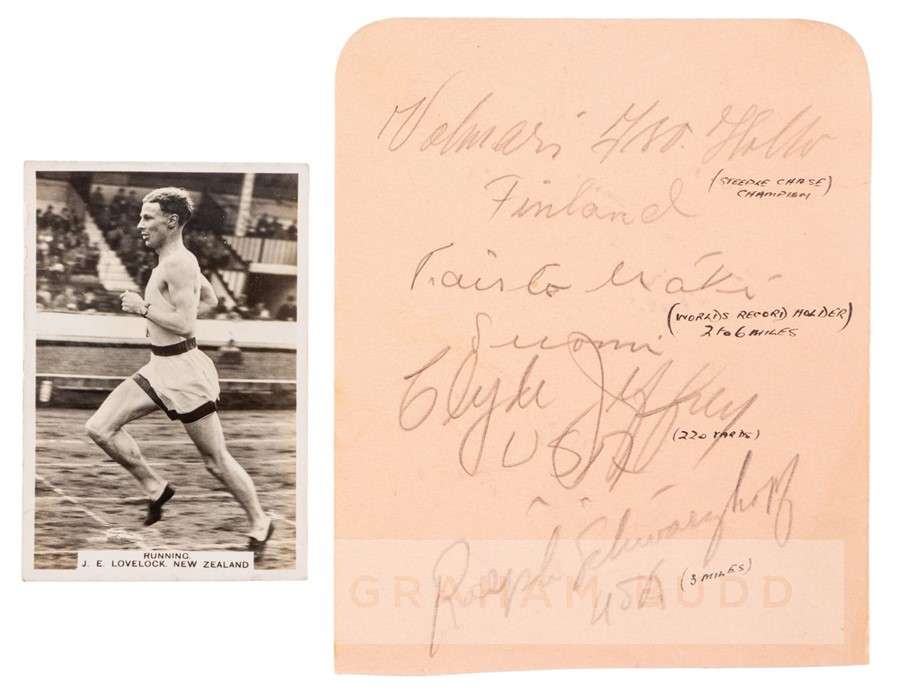 RUNNING.
J. E. LOVELOCK. NEW ZEALAND
Volmari Iso. Hollo
Finland
(STEEPLE CHASE)
CHAMPION
Taisto Mäki
Suomi
(WORLDS RECORD HOLDER)
2 to 6 MILES
Clyde Jeffrey
USA
(220 YARDS)
Ralph Schwarzkopf
USA
(3 MILES)
GRAHAM BUDD